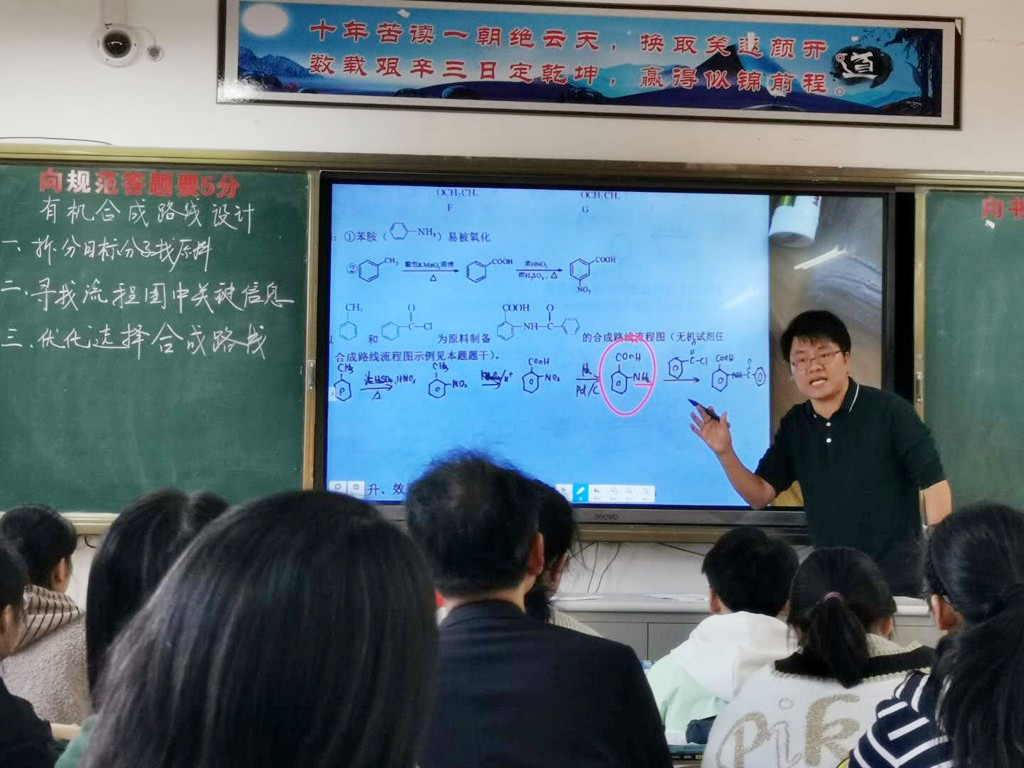 十年苦读一朝绝云天，换取笑逐颜开
数载艰辛三日定乾坤，赢得似锦前程。
道
向规范答题要5分
有机合成路线设计
一.拆分目标分子找原料
二.寻找流程图中关键信息
三.优化选择合成路线
向书
OCH₂CH₃ OCH₂CH₃
F G
①苯胺（ NH₂）易被氧化
② CH₃ 酸性KMnO₄溶液 △ COOH 浓HNO₃ 浓H₂SO₄, △ COOH NO₂
CH₃ O COOH O
和 C Cl 为原料制备 NH C 的合成路线流程图（无机试剂任
合成路线流程图示例见本题题干）。
CH₃ 浓H₂SO₄,HNO₃ △ CH₃ NO₂ /H⁺ COOH NO₂ H₂ Pd/C COOH NH₂ O C-Cl COOH NH-C O
升、效
Pik